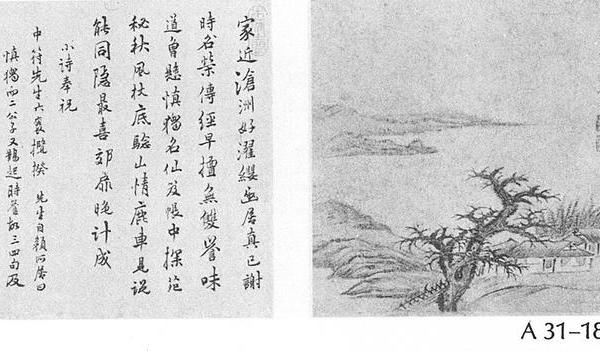 家近滄洲好濯纓幽居真已謝
時名榮傳經早擅無雙譽味
道曾懸慎獨名仙笈帳中探苑
秘秋風杖底驗山情鹿車見說
能同隱最喜郊扉晚計成
小詩奉祝
申符先生六袠攬揆 先生自額所居曰
慎獨而二公子又鵲起時譽故三四句及
A 31-18